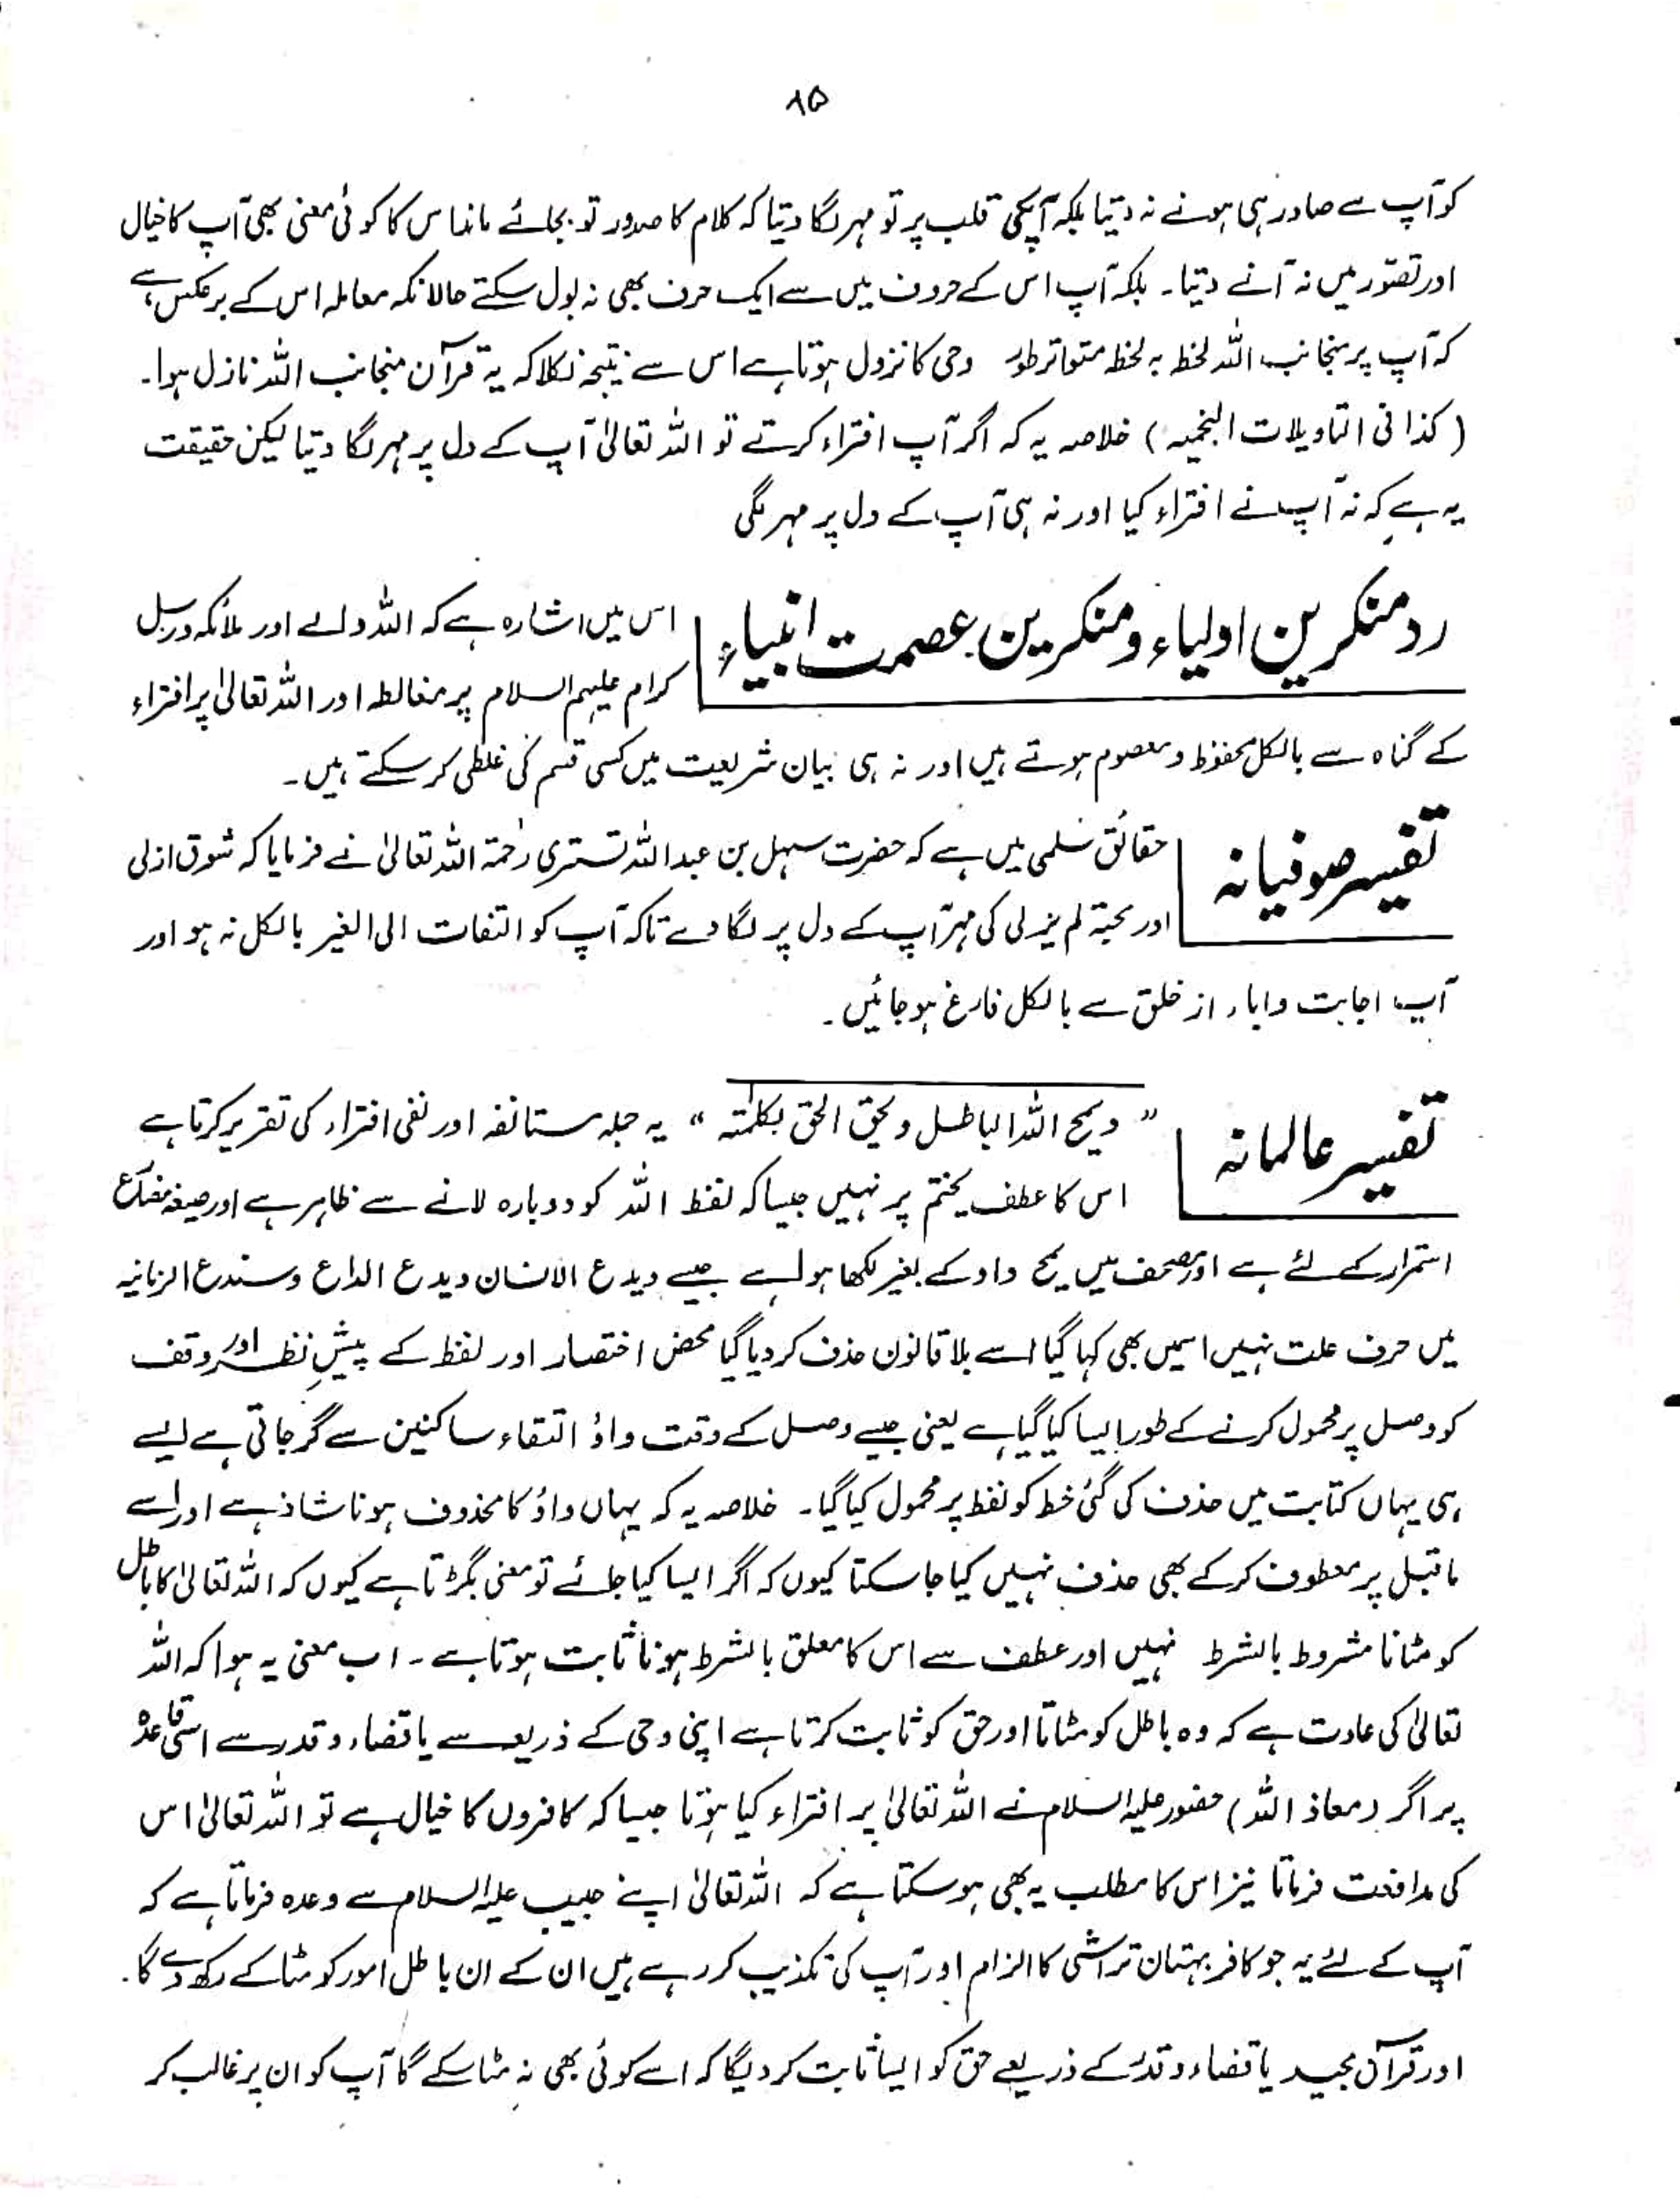 ۸۵
کو آپ سے صادر ہی ہونے نہ دیتا بلکہ آپکی قلب پر تو مہر لگا دیتا کہ کلام کا صدور تو بجائے ماند اس کا کوئی معنی بھی آپ کا خیال
اور تصوّر میں نہ آنے دیتا۔ بلکہ آپ اس کے حروف میں سے ایک حرف بھی نہ بول سکتے حالانکہ معاملہ اس کے برعکس ہے
کہ آپ پر منجانب اللہ لحظ بہ لحظ متواتر طور وحی کا نزول ہوتا ہے اس سے نتیجہ نکلا کہ یہ قرآن منجانب اللہ نازل ہوا۔
(کذا فی التاویلات النجمیہ) خلاصہ یہ کہ اگر آپ افتراء کرتے تو اللہ تعالیٰ آپ کے دل پر مہر لگا دیتا لیکن حقیقت
یہ ہے کہ نہ آپ نے افتراء کیا اور نہ ہی آپ کے دل پر مہر لگی
رد منکرین اولیاء و منکرین عصمت انبیاء
اس میں اشارہ ہے کہ اللہ والے اور ملائکہ و رسل
کرام علیہم السلام پر مغالطہ اور اللہ تعالیٰ پر افتراء
کے گناہ سے بالکل محفوظ و معصوم ہوتے ہیں اور نہ ہی بیان شریعت میں کسی قسم کی غلطی کر سکتے ہیں۔
تفسیر صوفیانہ
حقائق سلمی میں ہے کہ حضرت سہل بن عبداللہ تستری رحمۃ اللہ تعالیٰ نے فرمایا کہ شوق ازلی
اور محبۃ لم یزلی کی مہر آپ کے دل پر لگا دے تاکہ آپ کو التفات الی الغیر بالکل نہ ہو اور
آپ اجابت و اباء از خلق سے بالکل فارغ ہو جائیں۔
تفسیر عالمانہ
“ویمح اللہ الباطل ویحق الحق بکلمٰتہ” یہ جملہ مستانفہ اور نفی افتراء کی تقریر کرتا ہے
اس کا عطف یختم پر نہیں جیسا کہ لفظ اللہ کو دوبارہ لانے سے ظاہر ہے اور صیغہ مضارع
استمرار کے لئے ہے اور مصحف میں یمح واو کے بغیر لکھا ہوا ہے جیسے ویدع الانسان ویدع الداع وسندع الزبانیہ
میں حرف علت نہیں اسمیں بھی کہا گیا اسے بلا قانون حذف کر دیا گیا محض اختصار اور لفظ کے پیشِ نظر اور وقف
کو وصل پر محمول کرنے کے طور ایسا کیا گیا ہے یعنی جیسے وصل کے وقت واؤ التقاء ساکنین سے گر جاتی ہے ایسے
ہی یہاں کتابت میں حذف کی گئی خط کو لفظ پر محمول کیا گیا۔ خلاصہ یہ کہ یہاں واؤ کا محذوف ہونا شاذ ہے اور اسے
ماقبل پر معطوف کرکے بھی حذف نہیں کیا جا سکتا کیوں کہ اگر ایسا کیا جائے تو معنی بگڑتا ہے کیوں کہ اللہ تعالیٰ کا باطل
کو مٹانا مشروط بالشرط نہیں اور عطف سے اس کا معلق بالشرط ہونا ثابت ہوتا ہے۔ اب معنی یہ ہوا کہ اللہ
تعالیٰ کی عادت ہے کہ وہ باطل کو مٹاتا اور حق کو ثابت کرتا ہے اپنی وحی کے ذریعہ سے یا قضاء و قدر سے اسی قاعدہ
پر اگر (معاذ اللہ) حضور علیہ السلام نے اللہ تعالیٰ پر افتراء کیا ہوتا جیسا کہ کافروں کا خیال ہے تو اللہ تعالیٰ اس
کی مدافعت فرماتا نیز اس کا مطلب یہ بھی ہو سکتا ہے کہ اللہ تعالیٰ اپنے حبیب علیہ السلام سے وعدہ فرماتا ہے کہ
آپ کے لئے یہ جو کافر بہتان تراشی کا الزام اور آپ کی تکذیب کر رہے ہیں ان کے ان باطل امور کو مٹا کے رکھ دے گا۔
اور قرآن مجید یا قضاء و قدر کے ذریعے حق کو ایسا ثابت کر دیگا کہ اسے کوئی بھی نہ مٹا سکے گا آپ کو ان پر غالب کر